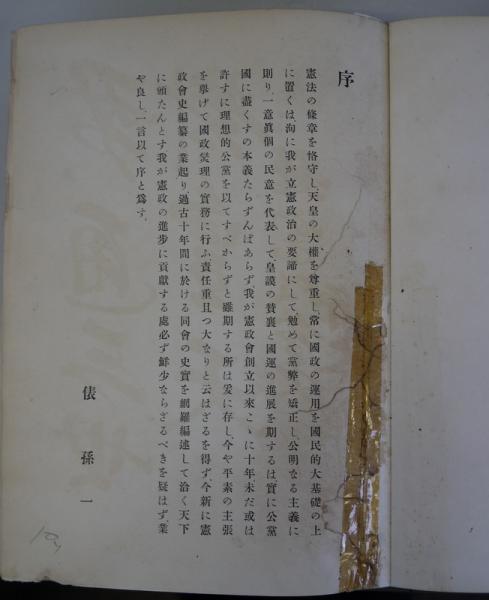 序
憲法の條章を恪守し、天皇の大權を尊重し、常に國政の運用を國民的大基礎の上
に置くは、洵に我が立憲政治の要諦にして、勉めて黨弊を矯正し、公明なる主義に
則り、一意眞個の民意を代表して、皇謨の賛襄と國運の進展を期するは實に公黨
國に盡くすの本義たらずんばあらず、我が憲政會創立以來こゝに十年、未だ或は
許すに理想的公黨を以てすべからずと雖期する所は爰に存し、今や平素の主張
を擧げて國政爕理の實務に行ふ責任重且つ大なりと云はざるを得ず、今新に憲
政會史編纂の業起り、過古十年間に於ける同會の史實を網羅編述して洽く天下
に頒たんとす我が憲政の進步に貢獻する處必ず鮮少ならざるべきを疑はず、業
や良し、一言以て序と爲す。
俵孫一